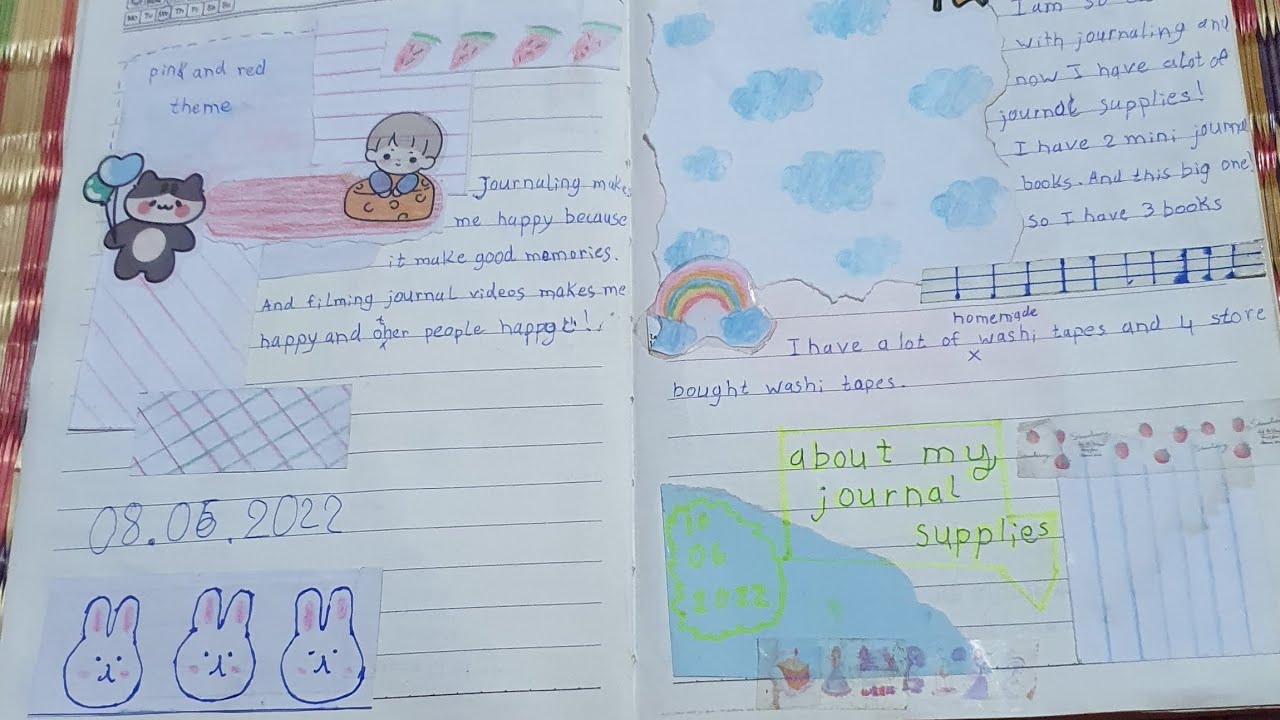 Mo Tu We Th Fr Sa Su
pink and red
theme
Journaling make
me happy because
it make good memories.
And filming journal videos makes me
happy and other people happy!!
08.06.2022
I am so
with journaling and
now I have a lot of
journal supplies!
I have 2 mini journal
books. And this big one!
so I have 3 books
homemade
I have a lot of washi tapes and 4 store
x
bought washi tapes.
about my
journal
supplies
10
06
2022